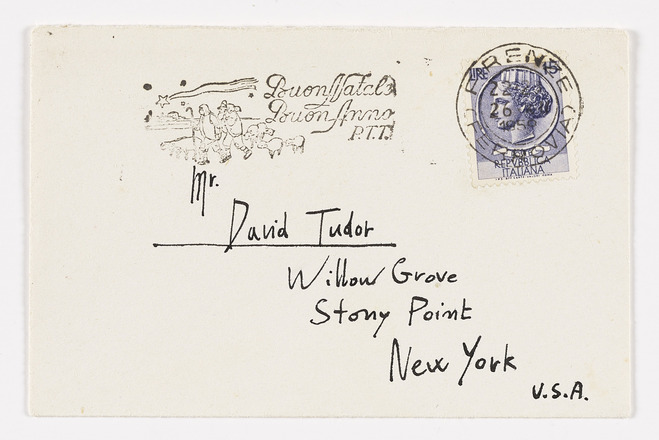 Buon Natale
Buon Anno
P.T.T.
FIRENZE
FERROVIA
LIRE
REPVBBLICA
ITALIANA
Mr.
David Tudor
Willow Grove
Stony Point
New York
U.S.A.